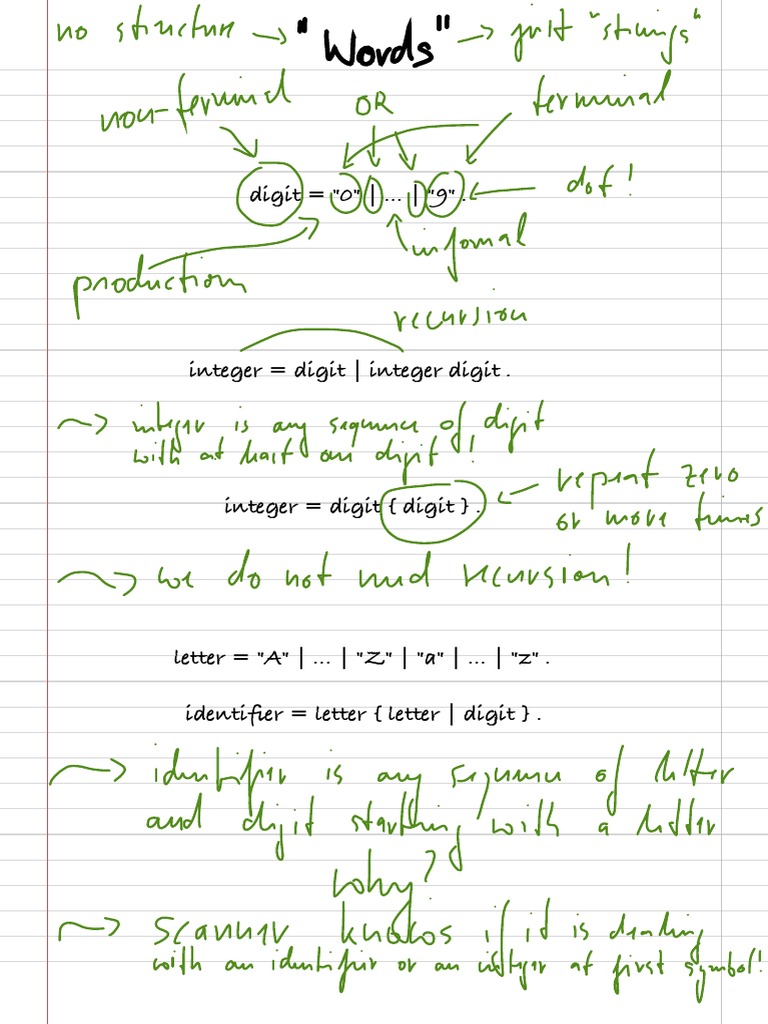 no structure → "Words" → just "strings"
non-terminal OR terminal
digit = "0" | ... | "9" . dot!
informal
production
recursion
integer = digit | integer digit .
integer is any sequence of digit
with at least one digit!
repeat zero
integer = digit { digit } .
or more times
we do not need recursion!
letter = "A" | ... | "Z" | "a" | ... | "z" .
identifier = letter { letter | digit } .
identifier is any sequence of letter
and digit starting with a letter
why?
scanner knows if it is dealing
with an identifier or an integer at first symbol!